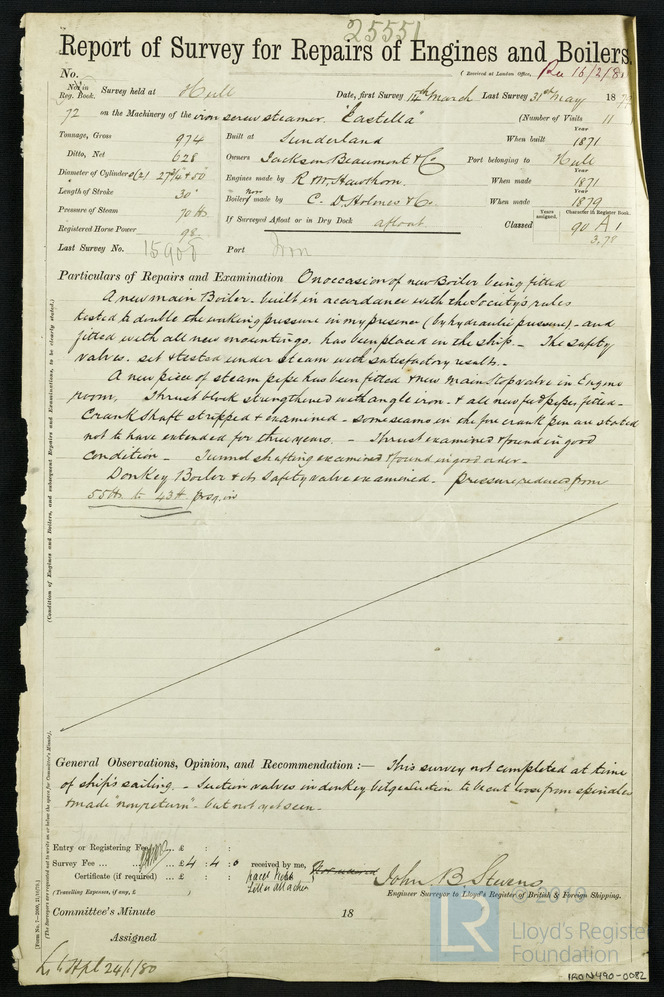 25551
Report of Survey for Repairs of Engines and Boilers.
(Received at London Office, Rec 16/2/80
No.
Not in Reg. Book. Survey held at Hull Date, first Survey 14th March Last Survey 31st May 1879
72 on the Machinery of the iron screw steamer "Castella" (Number of Visits 11)
Tonnage, Gross 974 Built at Sunderland When built Year 1871
Ditto, Net 628 Owners Jackson Beaumont & Co Port belonging to Hull
Diameter of Cylinders (2) 27¼ & 50 Engines made by R & W. Hawthorn. When made Year 1871
Length of Stroke 30" Boilers now made by C. D. Holmes & Co. When made Year 1879
Pressure of Steam 70 lbs If Surveyed Afloat or in Dry Dock afloat Classed Years assigned. 90 Character in Register Book. A1
Registered Horse Power 98 3,78
Last Survey No. 15908 Port
Particulars of Repairs and Examination On occasion of new Boiler being fitted
A new main Boiler - built in accordance with the Society's rules
tested to double the working pressure in my presence (by hydraulic pressure) - and
fitted with all new mountings. has been placed in the ship. - The Safety
valves. set & tested under steam with satisfactory results. -
A new piece of steam pipe has been fitted & new main stop valve in Engine
room. Thrust block strengthened with angle iron. & all new feed pipes fitted -
Crank Shaft stripped & examined - some seams in the fore crank pin are stated
not to have extended for three years. - Thrust examined & found in good
condition - Tunnel shafting examined & found in good order -
Donkey Boiler & its Safety valve examined. pressure reduced from
55 lbs to 43 lb pr sq. in
(Condition of Engines and Boilers, and subsequent Repairs and Examinations, to be clearly stated.)
General Observations, Opinion, and Recommendation :— This survey not completed at time
of ship's sailing. - Suction valves in donkey bilge suction to be cut loose from spindles
& made "nonreturn" - but not yet seen -
Entry or Registering Fee £ : :
Survey Fee ... £4 : 4 : 0 received by me,
Certificate (if required) ... £ : :
Letter attached
(Travelling Expenses, if any, £ )
John B. Stevens
Engineer Surveyor to Lloyd's Register of British & Foreign Shipping.
Committee's Minute 18
Assigned
24/1/80
© 2019
LR
Lloyd's Register
Foundation
IRON490-0082